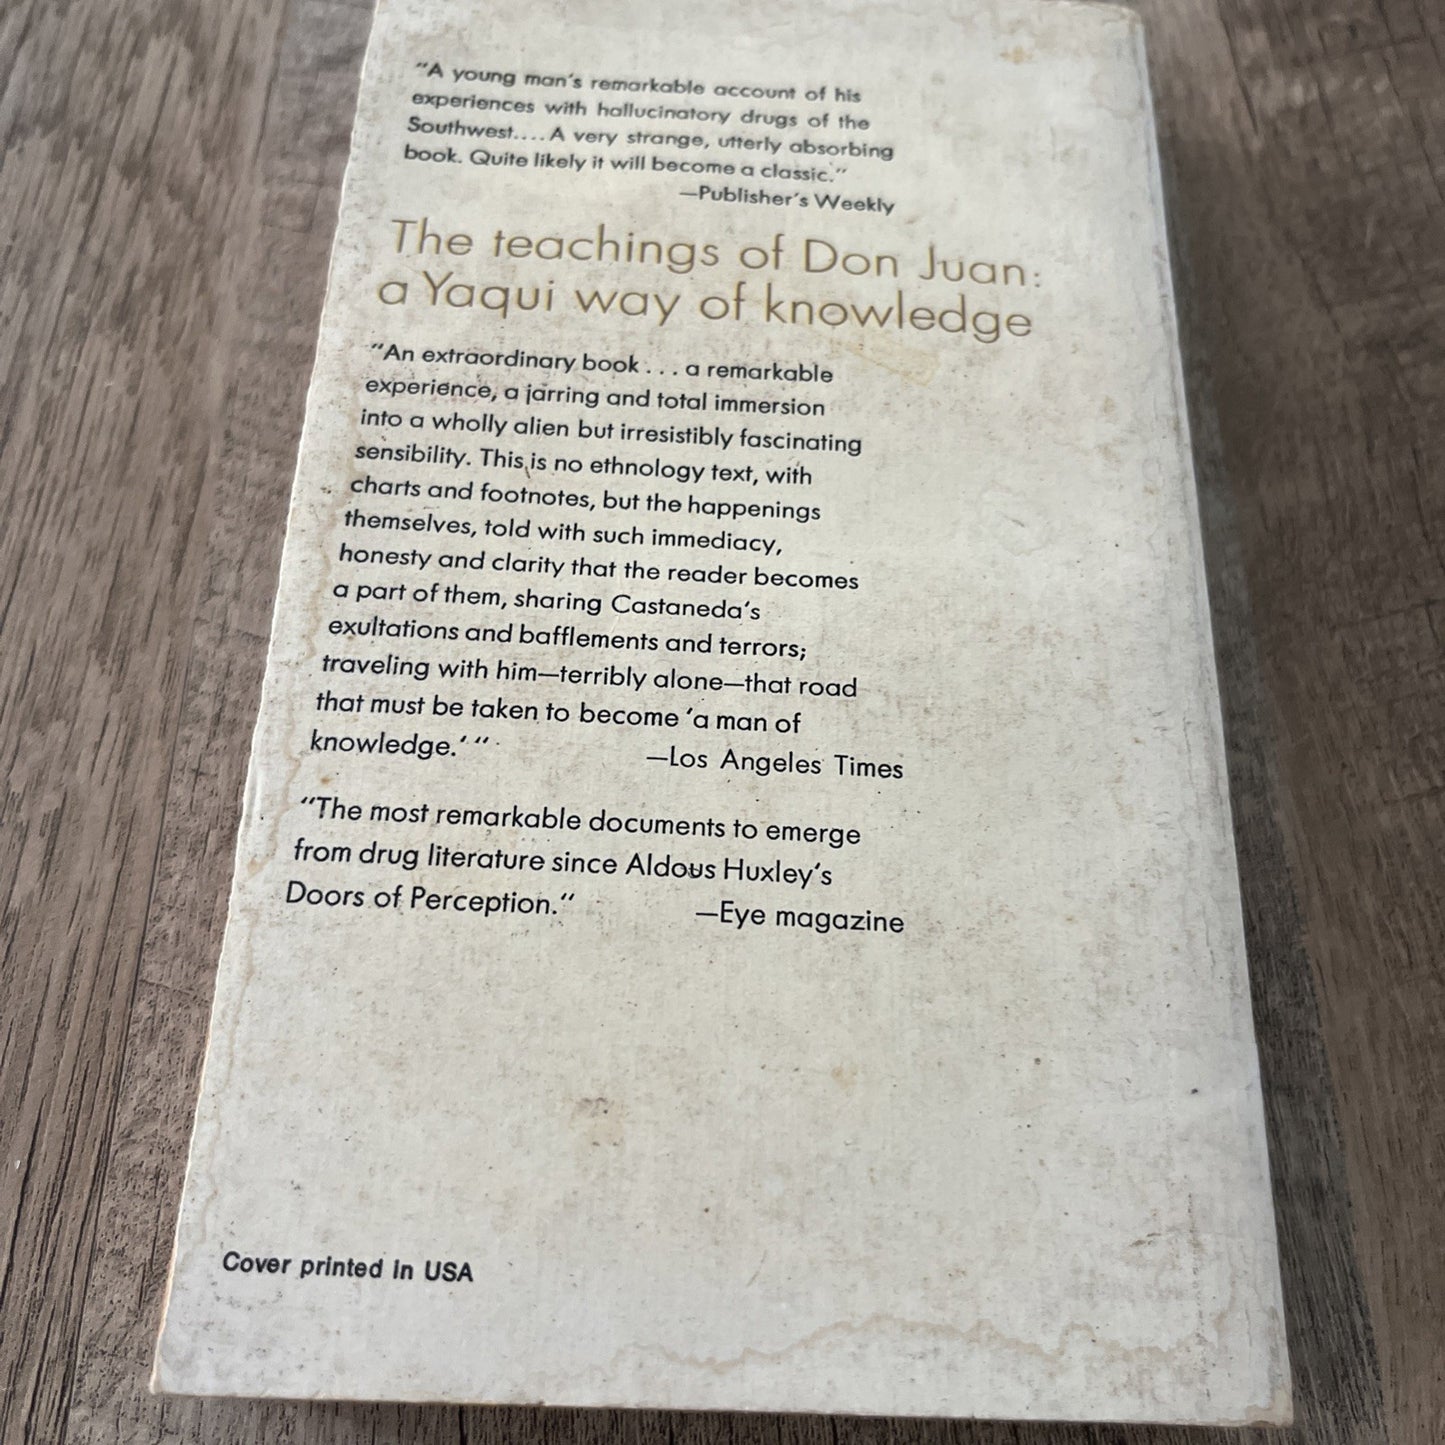 "A young man's remarkable account of his
experiences with hallucinatory drugs of the
Southwest....A very strange, utterly absorbing
book. Quite likely it will become a classic."
—Publisher's Weekly
The teachings of Don Juan:
a Yaqui way of knowledge
"An extraordinary book . . . a remarkable
experience, a jarring and total immersion
into a wholly alien but irresistibly fascinating
sensibility. This is no ethnology text, with
charts and footnotes, but the happenings
themselves, told with such immediacy,
honesty and clarity that the reader becomes
a part of them, sharing Castaneda's
exultations and bafflements and terrors;
traveling with him—terribly alone—that road
that must be taken to become 'a man of
knowledge.' "
—Los Angeles Times
"The most remarkable documents to emerge
from drug literature since Aldous Huxley's
Doors of Perception."
—Eye magazine
Cover printed in USA